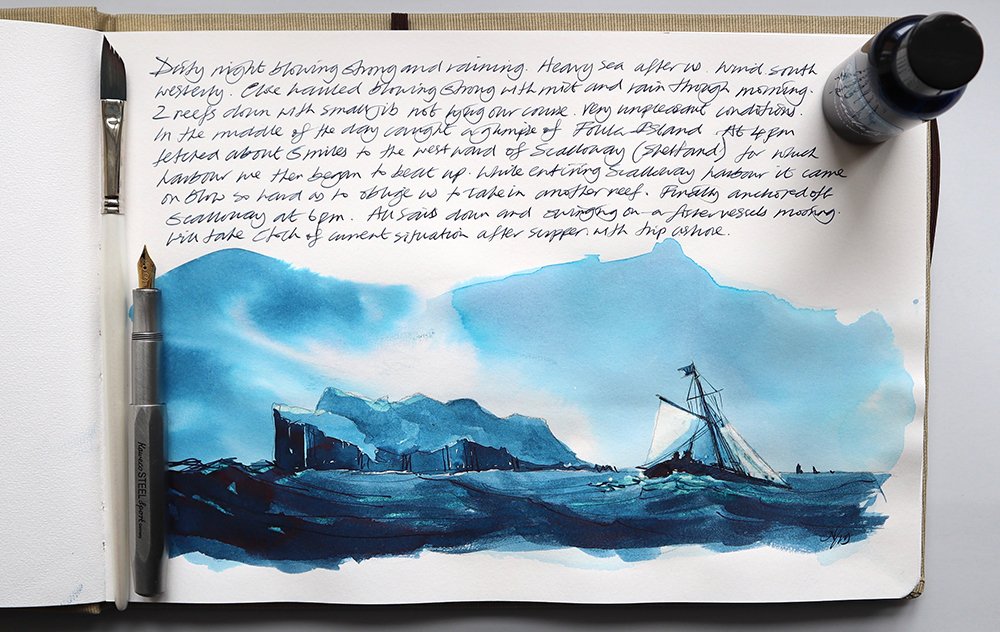 Dirty night blowing strong and raining. Heavy sea after us. Wind south
westerly. Close hauled blowing strong with mist and rain through morning.
2 reefs down with small jib not lying our course. Very unpleasant conditions.
In the middle of the day caught a glimpse of Foula Island. At 4pm
fetched about 5 miles to the westward of Scalloway (Shetland) for which
harbour we then began to beat up. While entering Scalloway harbour it came
on blow so hard as to oblige us to take in another reef. Finally anchored off
Scalloway at 6pm. All sails down and swinging on a fisher vessels mooring.
Will take Clock of current situation after supper with trip ashore.
Kaweco STEEL Sport